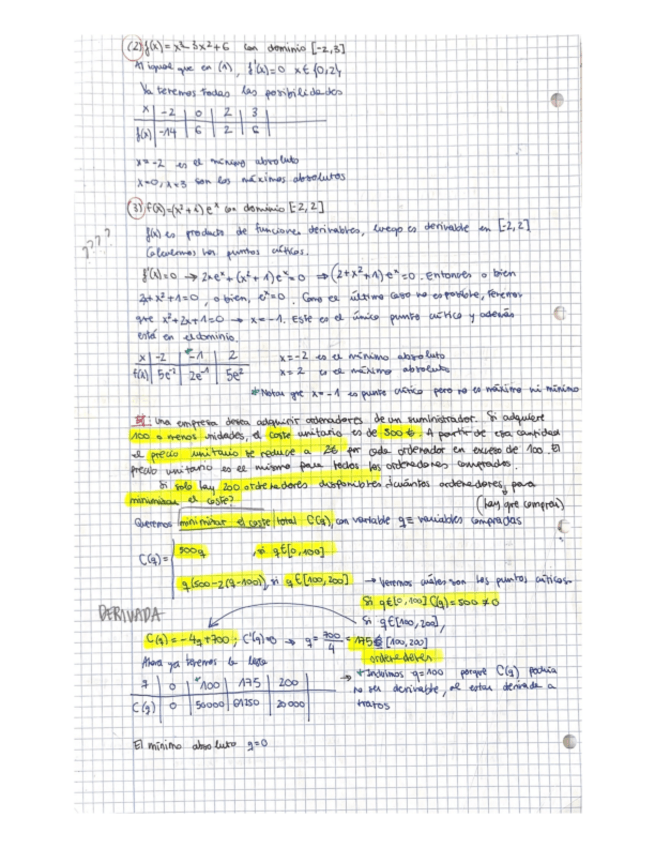 (2) f(x) = x³-3x²+6 con dominio [-2,3]
Al igual que en (1), f'(x)=0 x∈{0,2},
Ya tenemos todas las posibilidades
x | -2 | 0 | 2 | 3
f(x) | -14 | 6 | 2 | 6
x=-2 es el mínimo absoluto
x=0, x=3 son los máximos absolutos
(3) f(x)=(x²+1)eˣ con dominio [-2,2]
???
f(x) es producto de funciones derivables, luego es derivable en [-2,2]
Calculemos los puntos críticos.
f'(x)=0 → 2xeˣ+(x²+1)eˣ=0 ⇒ (2x+x²+1)eˣ=0. Entonces o bien
2x+x²+1=0, o bien, eˣ=0. Como el último caso no es posible, tenemos
que x²+2x+1=0 → x=-1. Este es el único punto crítico y además
está en el dominio.
x | -2 | *-1 | 2 x=-2 es el mínimo absoluto
f(x) | 5e⁻² | 2e⁻¹ | 5e² x=2 es el máximo absoluto
*Notar que x=-1 es punto crítico pero no es máximo ni mínimo
Una empresa desea adquirir ordenadores de un suministrador. Si adquiere
100 o menos unidades, el coste unitario es de 500€. A partir de esa cantidad
el precio unitario se reduce a 2€ por cada ordenador en exceso de 100. El
precio unitario es el mismo para todos los ordenadores comprados.
Si solo hay 200 ordenadores disponibles ¿cuántos ordenadores, para
minimizar el coste? (hay que comprar)
Queremos minimizar el coste total C(q), con variable q = variables compradas
C(q)= 500q, si q∈[0,100]
q(500-2(q-100)), si q∈[100,200] → Veremos cuáles son los puntos críticos.
Si q∈[0,100] C(q)=500≠0
DERIVADA
Si q∈[100,200],
C(q)=-4q+700; C'(q)=0 → q=700/4=175∈[100,200]
ordenadores
Ahora ya tenemos la lista
q | 0 | *100 | 175 | 200
C(q) | 0 | 50000 | 61250 | 20000
→ *Incluimos q=100 porque C(q) podría
no ser derivable, al estar definida a
trozos
El mínimo absoluto q=0